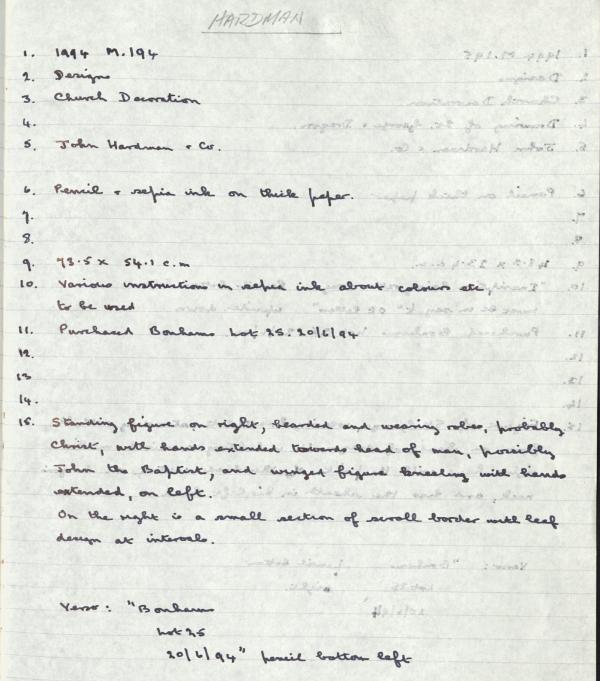 HARDMAN
1. 1994 M.194
2. Designs
3. Church Decoration
4.
5. John Hardman & Co.
6. Pencil & sepia ink on thick paper.
7.
8.
9. 73.5 x 54.1 c.m
10. Various instructions in sepia ink about colours etc,
to be used
11. Purchased Bonhams Lot 25. 20/6/94
12.
13
14.
15. Standing figure on right, bearded and wearing robes, probably
Christ, with hands extended towards head of man, possibly
John the Baptist, and winged figure kneeling with hands
extended, on left.
On the right is a small section of scroll border with leaf
design at intervals.
Verso: "Bonhams
Lot 25
20/6/94" pencil bottom left